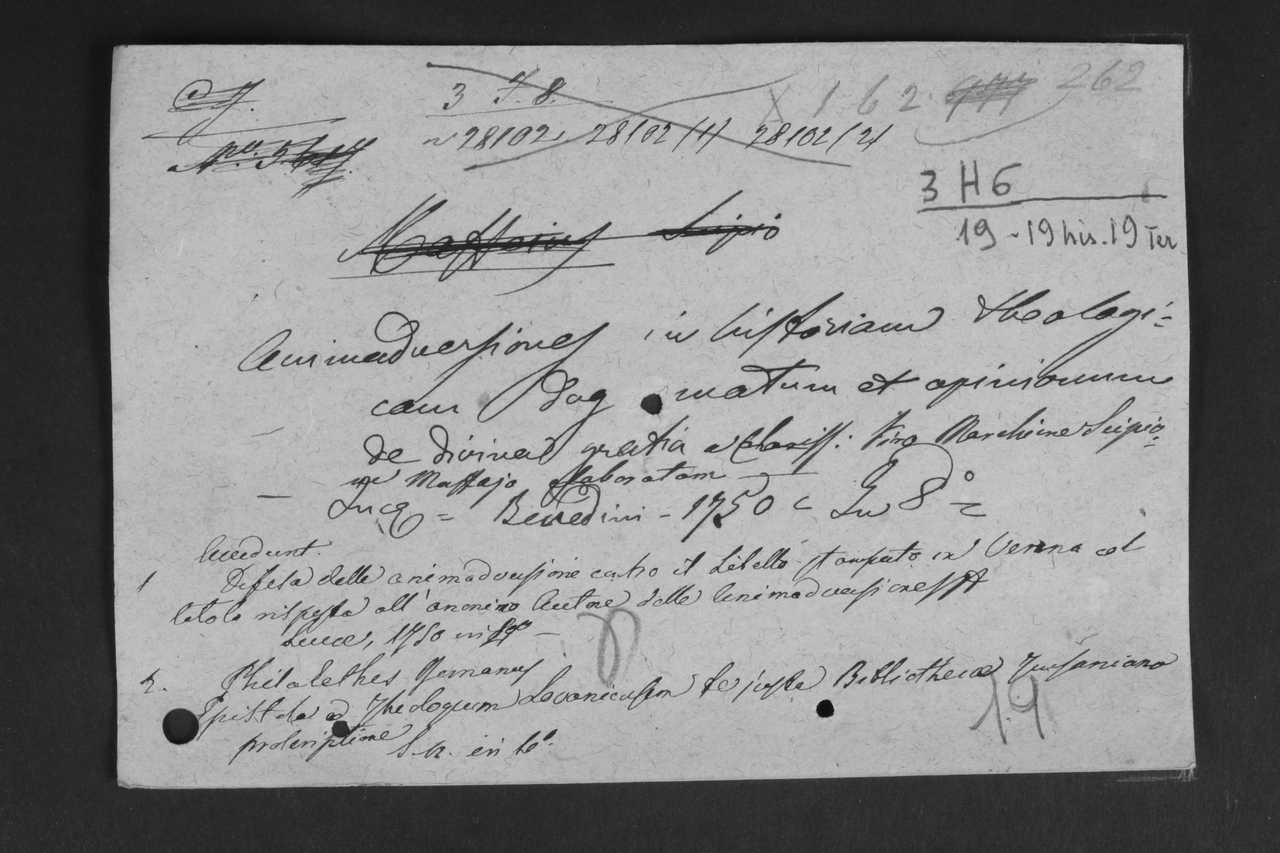 3 F. 8.
28102 28102/1 28102/2
X 162 262
3 H 6
19 - 19 bis. 19 Ter
Maffeius Scipio
Animadversiones in historiam theologi=
cam dogmatum et opinionum
de divina gratia a Clariss: Viro Marchione Scipio=
ne Maffejo elaboratam
Lucæ = Benedini - 1750 = In 8°=
Accedunt.
1 Difesa delle animadversione contro il Libello stampato in Verona col
titolo risposta all'anonimo Autore delle Animadversiones
Lucca, 1750 in
2. Philalethes Romanus
Epistola ad Theologum Lovaniensem de justa Bibliothecæ Janseniana
proscriptione S. n. in 16°.
19